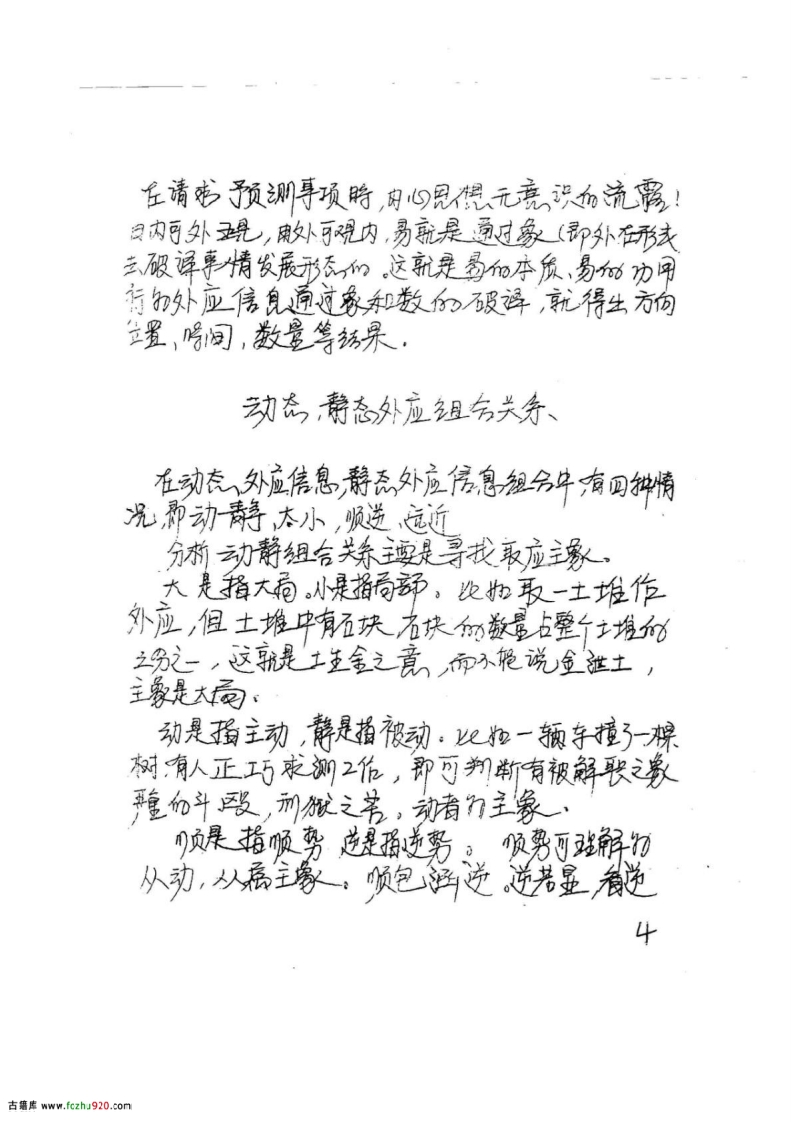 在请求预测事项时,内心思想无意识的流露!
由内可外现,由外可观内,易就是通过象(即外在形式
去破译事情发展形态的。这就是易的本质、易的功用
有的外应信息通过象和数的破译,就得出方向
位置、时间,数量等结果.
动态、静态外应组合关系、
在动态、外应信息,静态外应信息组合中,有四种情
况,即动静、大小,顺逆、远近
分析动静组合关系主要是寻找取应主象。
大是指大局。小是指局部。比如取一土堆作
外应,但土堆中有石块 石块的数量占整个土堆的
分之一,这就是土生金之意,而不能说金泄土,
主象是大局。
动是指主动,静是指被动.比如一辆车撞了一棵
树,有人正巧求测工作,即可判断有被解聘之象
重的斗殴,刑狱之苦。动者为主象.
顺是指顺势 逆是指逆势。顺势可理解为
从动,从为主象.顺包涵逆.逆若显,看逆
4
古籍库 www.fczhu920.com